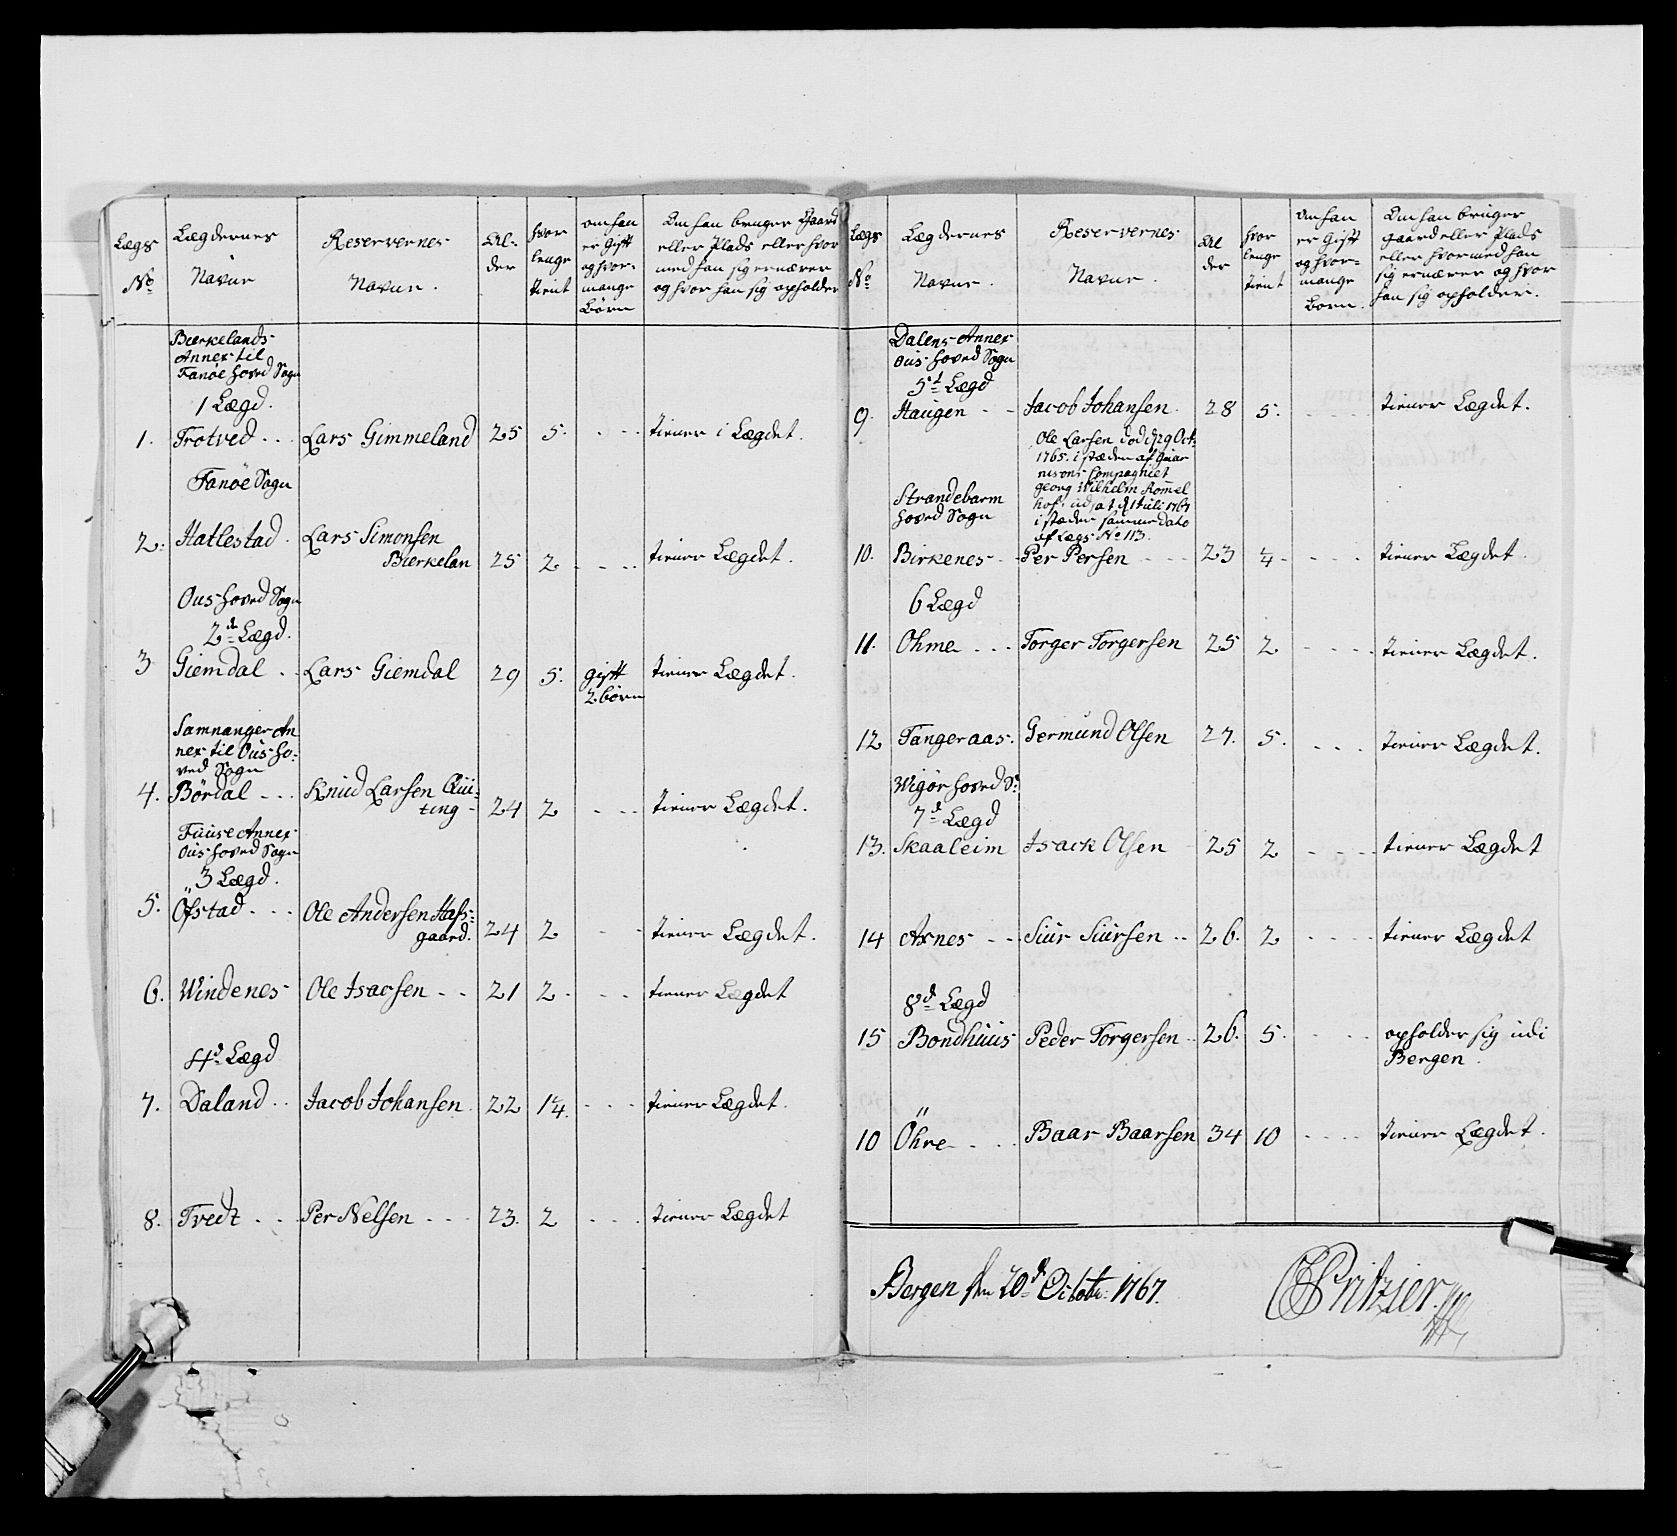 Lægs
No
Lægdernes
Navne
Reservernes
Navne.
Al-
der
hvor
lenge
tient
om han
er Gift
og hvor-
mange
Börn
Om han bruger Gaard
eller Plads eller hvor
med han sig ernærer
og hvor han sig opholder
Bierkelands
Annex til
Fanöe hoved Sogn
1 Lægd.
1. Trotved . . . Lars Gimmeland 25 5. . - - tiener i Lægdet.
Fanöe Sogn
2. Hatlestad . Lars Simonsen
Bierkelan 25 2 . . . . tiener Lægdet.
Ous hoved Sogn
2d Lægd.
3 Giemdal . . Lars Giemdal 29 5. gift tiener Lægdet.
2 börn
Samnanger An
nex til Ous ho-
ved Sogn
4. Bördal - . . Knud Larsen Qui-
ting - 24 2 . - - tiener Lægdet.
Fuuse Annex
Ous hoved Sogn
3 Lægd.
5. Öfstad . . . Ole Andersen Hafs-
gaard. 24 2 - - tiener Lægdet.
6. Windenes - Ole Isacsen - - 21 2 . . - - tiener Lægdet
4d Lægd
7. Daland . . Jacob Johansen . 22 1/4. . - - tiener Lægdet.
8. Tvedt . . . Per Nelsen - - - 23. 2 . . . tiener Lægdet
Lægs
No
Lægdernes
Navne.
Reservernes
Navne.
Al
der
hvor
lenge
tient
Om han
er Gift
og hvor-
mange
born.
Om han bruger
gaard eller Plads
eller hvormed han
sig ernærer og hvor
han sig opholder.
Dalens Annex
Ous hoved Sogn
5t Lægd
9. Haugen - - Jacob Johansen. 28 5. . - - - tiener Lægdet.
Ole Larsen död d 29 Oct:
1765. i stæden af Guar
nisons Compagniet
Georg Wilhelm Römel
hof. d 1 Juli 1767
i stæden samme dato
af Lægs No 113.
Strandebarm
hoved Sogn
10. Birkenes - - Per Persen - - - 23 1/4 - - - - tiener Lægdet.
6 Lægd
11. Ohme . . . Torger Torgersen 25 2 - - - - tiener Lægdet.
12 Tangeraas. Germund Olsen 27. 5. . . . tiener Lægdet.
Wigör hoved S:
7d Lægd
13. Skaaleim Isack Olsen 25 2 - - - - tiener Lægdet
14 Axnes - - Siur Siursen - - 26. 2 - - - - tiener Lægdet
8d Lægd
15 Bondhuus Peder Torgersen . . 26. 5. . . . . opholder sig udi
Bergen.
10 Öhre - . . . Baar Baarsen 34 10 - - - - tiener Lægdet.
Bergen den 20d Octobr: 1767.